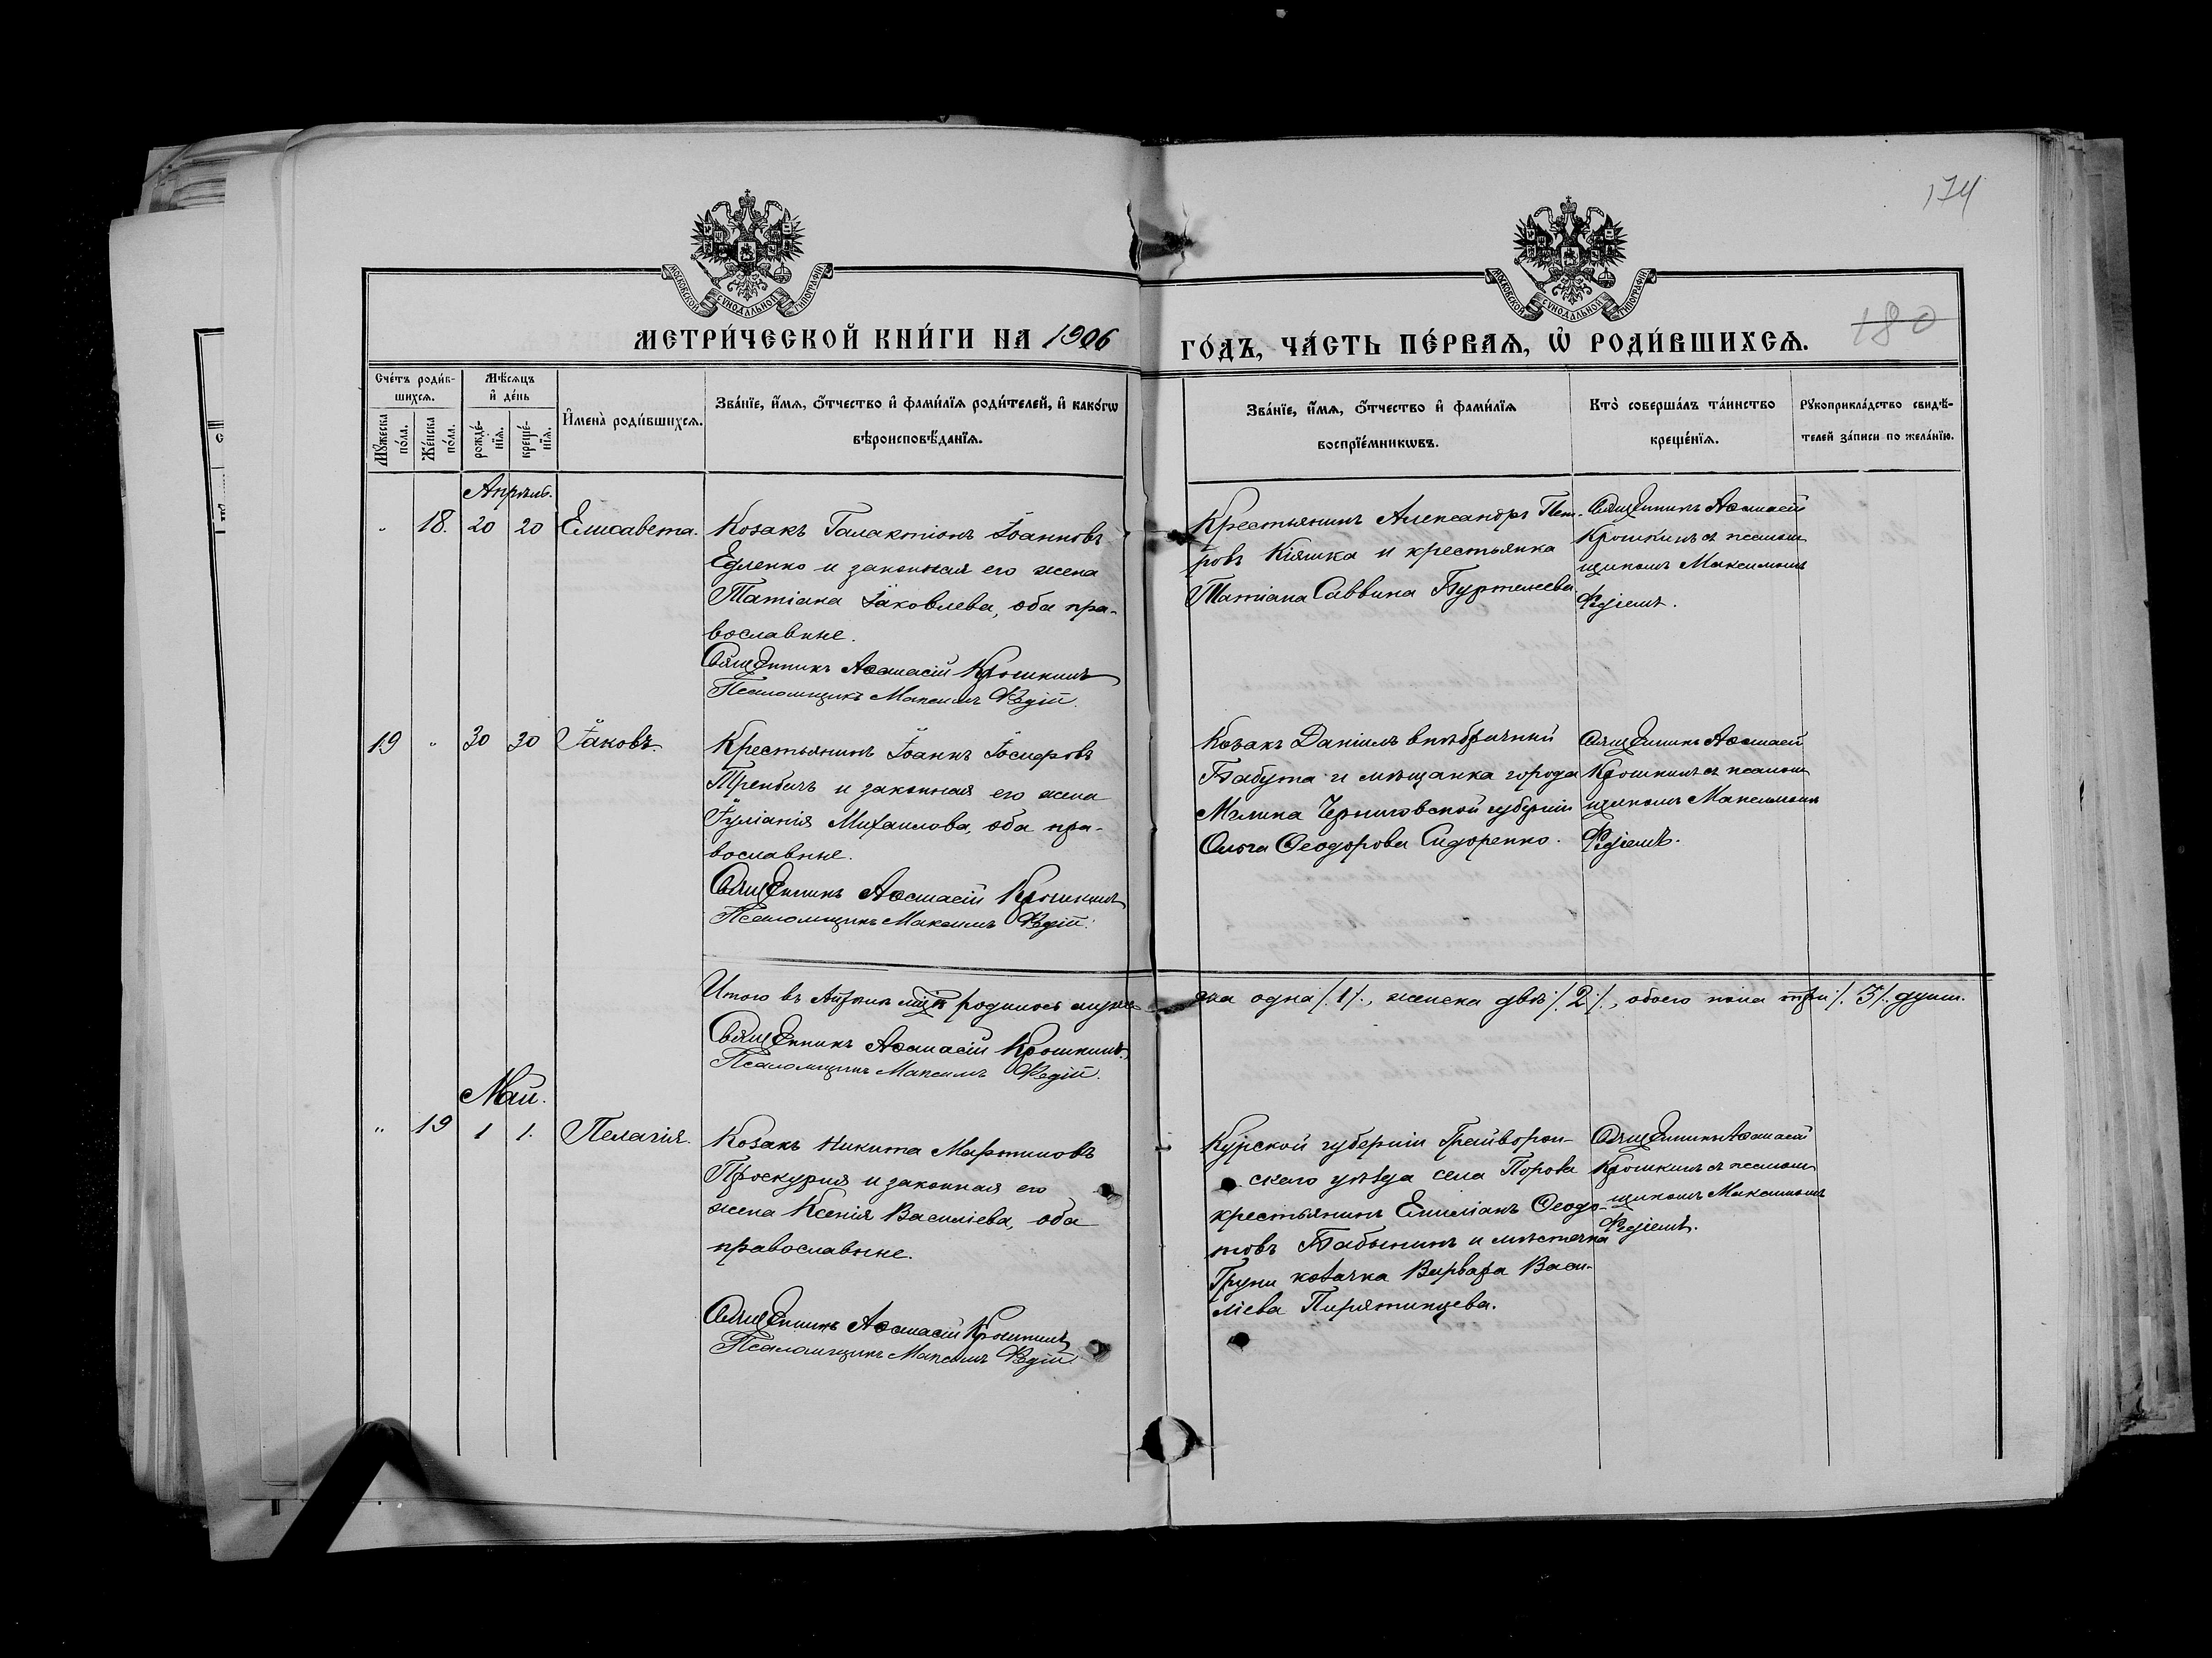 174
180
МОСКОВСКОЙ СѴНОДАЛЬНОЙ ТИПОГРАФІИ
МОСКОВСКОЙ СѴНОДАЛЬНОЙ ТИПОГРАФІИ
МЕТРИ́ЧЕСКОЙ КНИ́ГИ НА 1906
ГО́ДЪ, ЧА́СТЬ ПЕ́РВАѦ, Ѽ РОДИ́ВШИХСѦ.
Сче́тъ роди́в-
шихсѧ.
Мꙋ́жеска по́ла.
Же́нска по́ла.
Мѣ́сѧцъ
и҆ де́нь
рожде́-
нїѧ.
креще́-
нїѧ.
И҆мена̀ роди́вшихсѧ.
Зва́нїе, и҆́мѧ, ѻ҆́тчество и҆ фами́лїѧ роди́телей, и҆ како́гѡ
вѣроисповѣ́данїѧ.
Зва́нїе, и҆́мѧ, ѻ҆́тчество и҆ фами́лїѧ
воспрїе́мникѡвъ.
Кто̀ соверша́лъ та́инство
креще́нїѧ.
Рꙋкоприкла́дство свидѣ́-
телей за́писи по жела́нїю.
Апрѣль.
" 18. 20 20 Елисавета.
Козакъ Галактіонъ Іоанновъ
Едленко и законная его жена
Татіана Іаковлева, оба пра-
вославные.
Священникъ Аѳанасій Крошкинъ
Псаломщикъ Максимъ Федій.
Крестьянинъ Александръ Пет-
ровъ Кіяшка и крестьянка
Татіана Саввина
Священникъ Аѳанасій
Крошкинъ съ псалом
щикомъ Максимомъ
Федіемъ.
19 " 30 30 Іаковъ
Крестьянинъ Іоаннъ Іосифовъ
Требичъ и законная его жена
Іуліанія Михаилова, оба пра-
вославные.
Священникъ Аѳанасій Крошкинъ
Псаломщикъ Максимъ Федій.
Козакъ Даніилъ внѣбрачный
Бабута и мѣщанка города
Мглина Черниговской губерніи
Ольга Ѳеодорова Сидоренко.
Священникъ Аѳанасій
Крошкинъ съ псалом
щикомъ Максимомъ
Федіемъ.
Итого въ Апрѣлѣ мцѣ родилось муже-
ска одна /.1/., женска двѣ /.2/., обоего пола три /.3/. душ.
Священникъ Аѳанасій Крошкинъ.
Псаломщикъ Максимъ Федій.
Май.
" 19 1 1. Пелагія.
Козакъ Никита Мартиновъ
Проскурня и законная его
жена Ксенія Василіева, оба
православные.
Священникъ Аѳанасій Крошкинъ
Псаломщикъ Максимъ Федій.
Курской губерніи Грайворон-
скаго уѣзда села
крестьянинъ Емиліанъ Ѳеодо-
товъ Бабынинъ и мѣстечка
Груни козачка Варвара Васи-
ліева Пирятинцева.
Священникъ Аѳанасій
Крошкинъ съ псалом
щикомъ Максимомъ
Федіемъ.